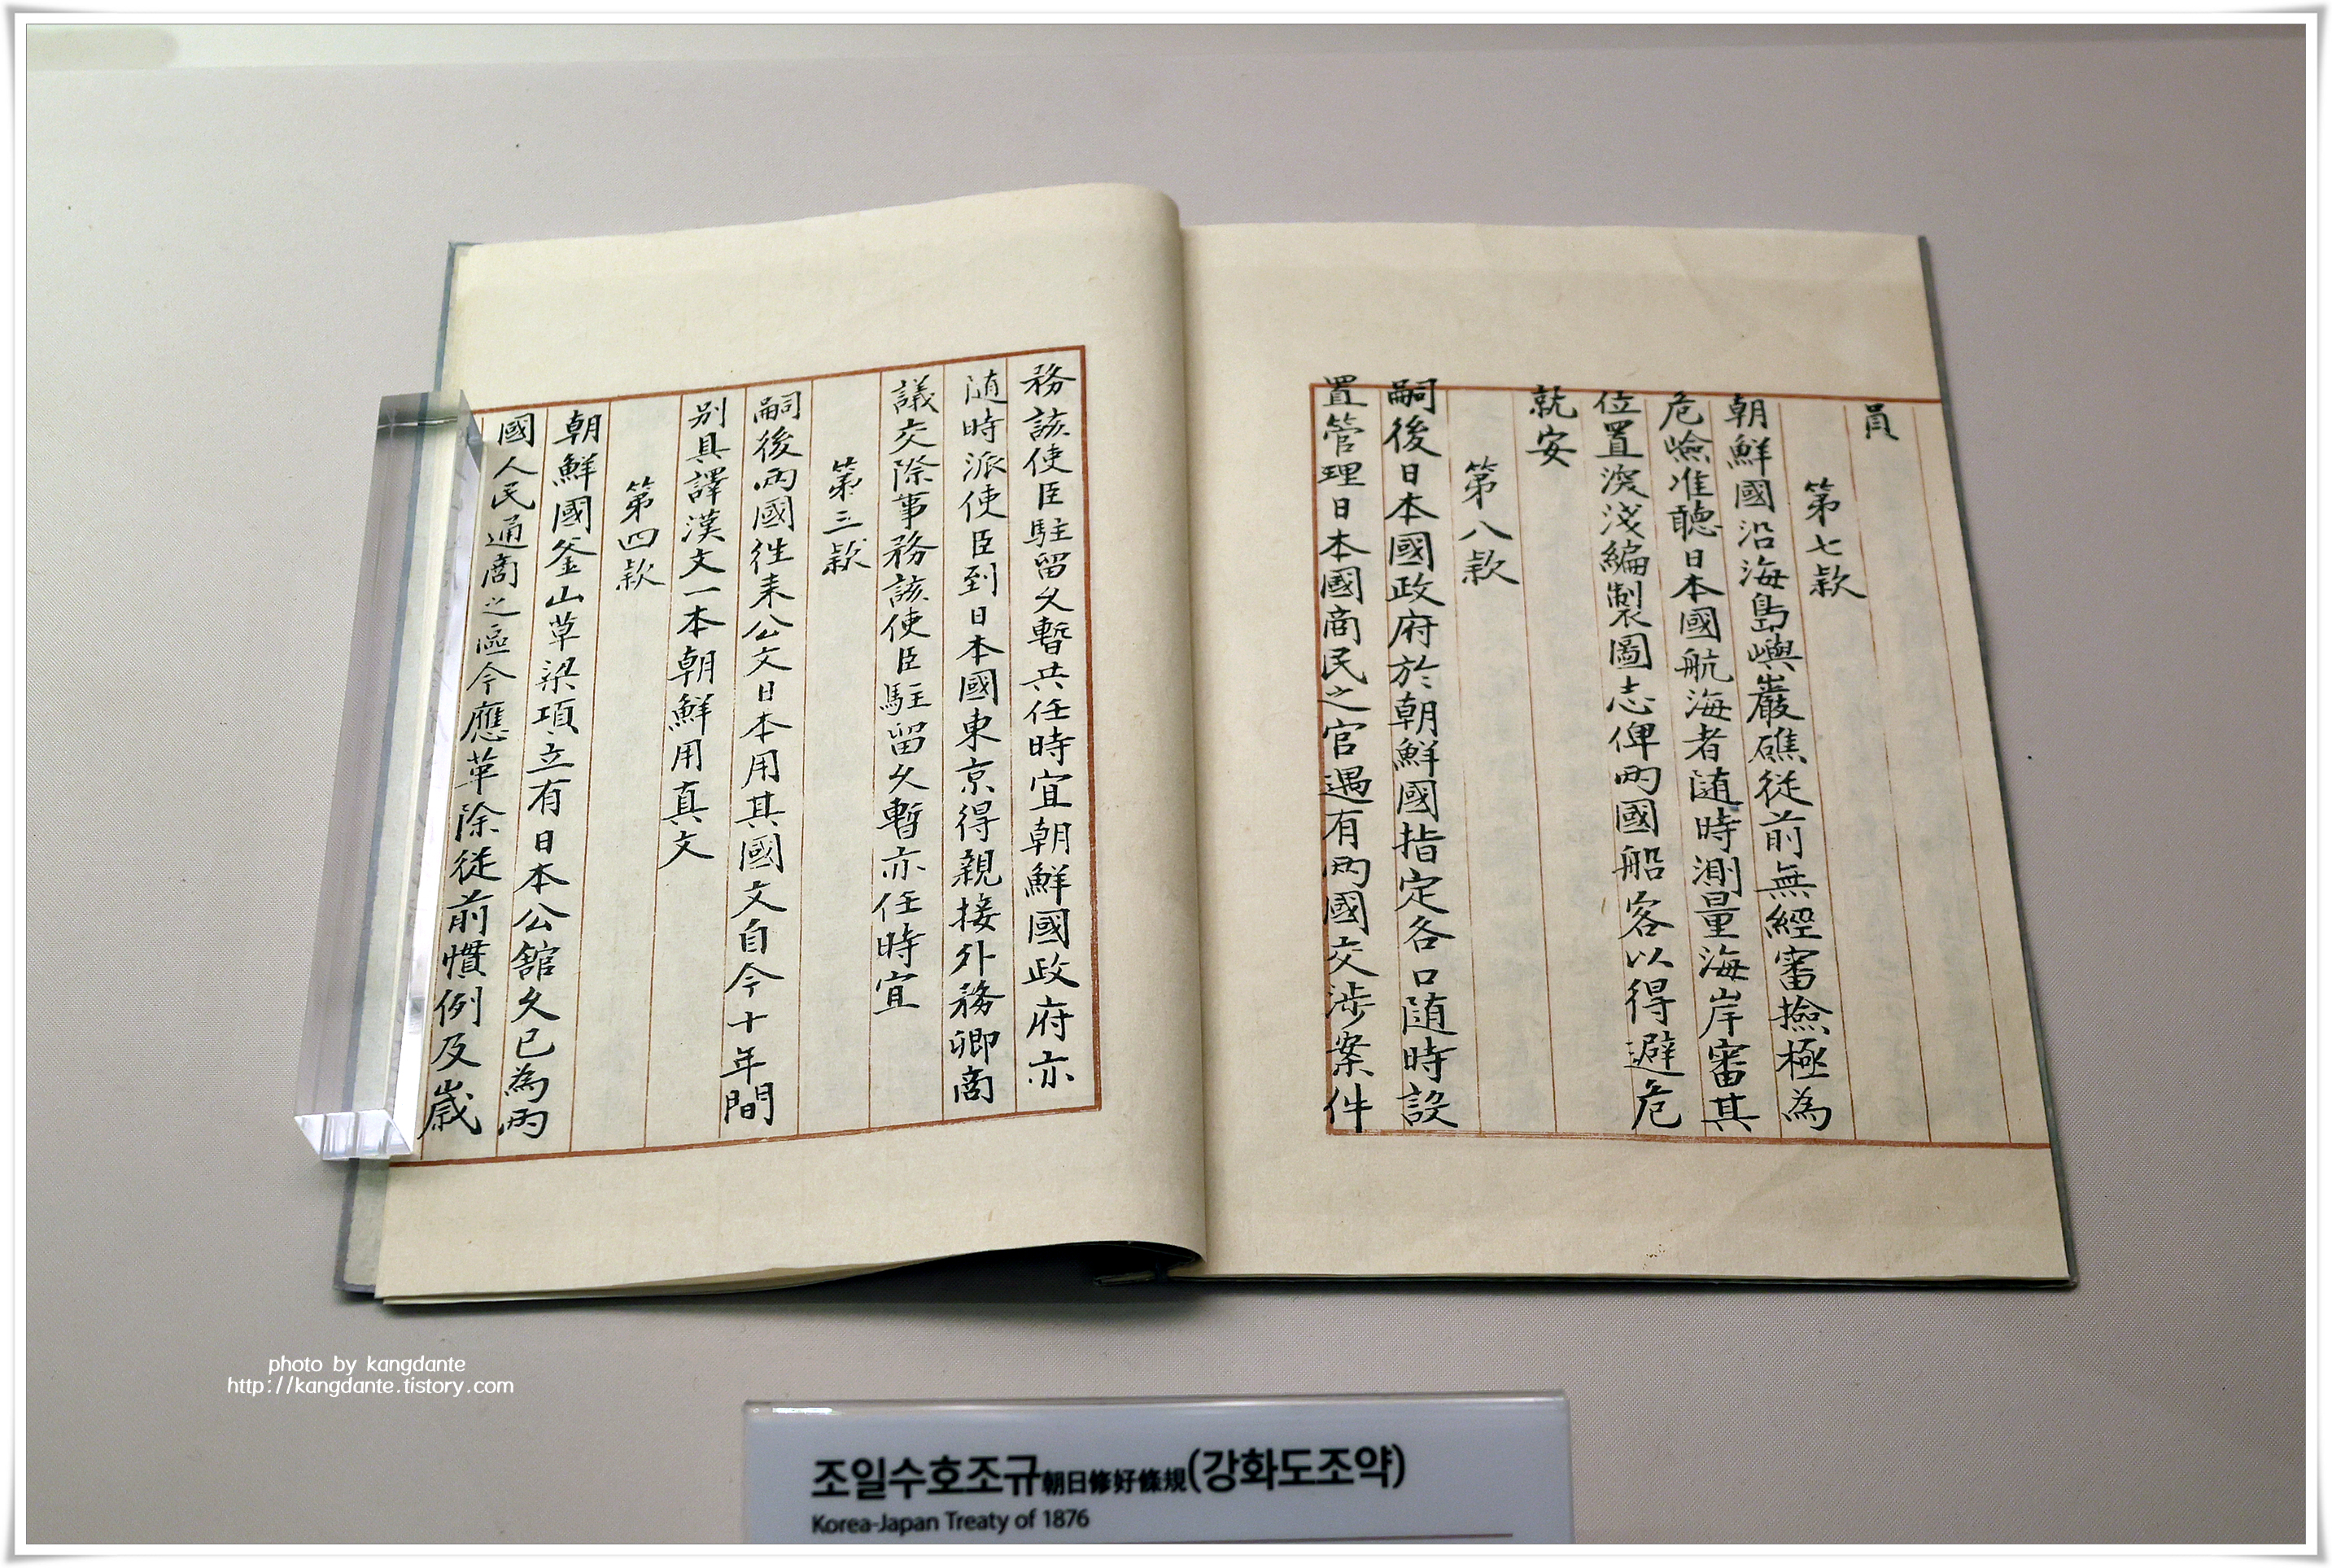 員
第七款
朝鮮國沿海島嶼巖礁從前無經審撿極為
危嶮准聽日本國航海者随時測量海岸審其
位置深淺編製圖志俾兩國船客以得避危
就安
第八款
嗣後日本國政府於朝鮮國指定各口随時設
置管理日本國商民之官遇有兩國交涉案件
務該使臣駐留久暫共任時宜朝鮮國政府亦
随時派使臣到日本國東京得親接外務卿商
議交際事務該使臣駐留久暫亦任時宜
第三款
嗣後兩國徃来公文日本用其國文自今十年間
別具譯漢文一本朝鮮用真文
第四款
朝鮮國釜山草梁項立有日本公館久已為兩
國人民通商之區今應革除從前慣例及歲
photo by kangdante
http://kangdante.tistory.com
조일수호조규朝日修好條規(강화도조약)
Korea-Japan Treaty of 1876